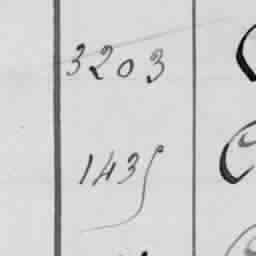 3203
1435